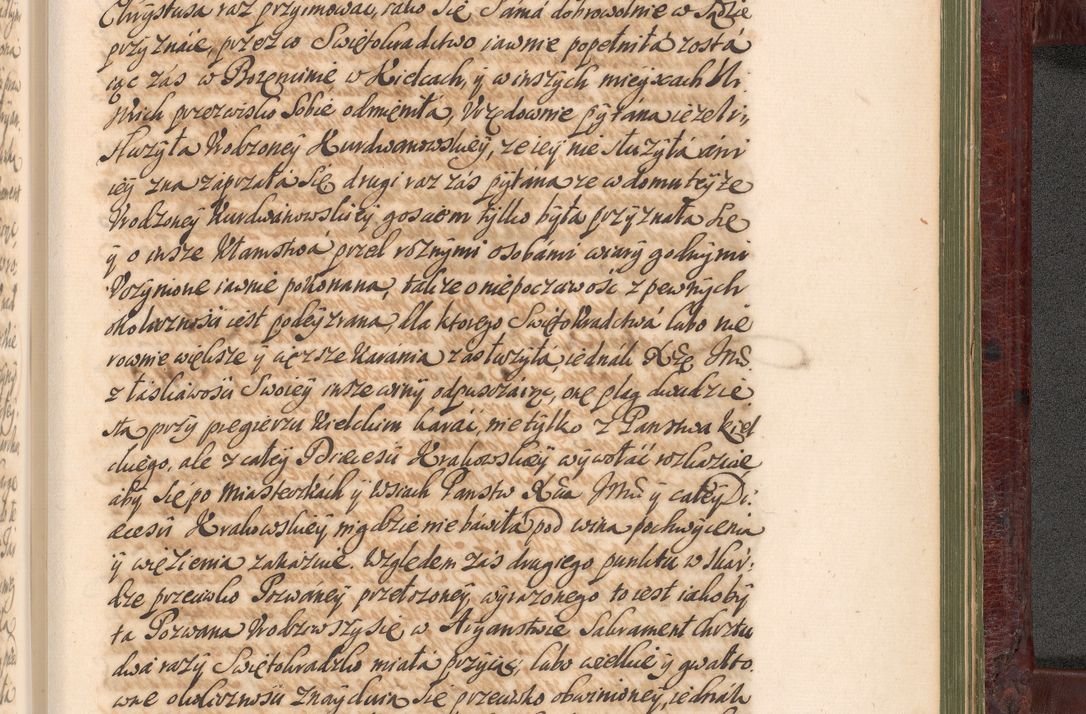 Chrystusa raz przyimować, iako się Sama dobrowolnie w Sądzie
przyznáie, przez co Swiętokradctwo iawnie popełniłá zostá
iąc zas w Bozęminie w Kielcach, y w inszych mieyscach Ur
przezwisko Sobie odmięniłá, Urzędownie pytána ieżeli
służyła Urodzoney Kurdwanowskiey, ze iey nie służyłá áni
iey zna zaprzałá się drugi raz zás pytána ze w domu teyże
Urodzoney Kurdwánowskiey gosciem tylko byłá przyznała się
y o insze kłamstwá przed roznymi osobámi wiary godnymi
Uczynione iawnie pokonana, tákze o niepoczciwość z pewnych
okolicznosci iest podeyzrana, dla ktorego Swiętokradctwá lubo nie
rownie większe y cięzsze karania zasłuzyłá, iednák Xżę Jmć
z łáskáwosci Swoiey insze winy odpuszczáiąc, onę plag dwádzie
sta przy pręgierzu Kielckim karáć, nie tylko z Państwa Kiel
ckiego, ale z całey Diæcesii Krakowskiey wywołáć roskázuie
aby się po Miasteczkách y Wsiach Państw Xcia Jmci y całey Di
æcesii Krakowskiey nigdzie nie báwiłá pod winą pochwycenia
y więzienia zakázuie. Względem zás drugiego punktu w skár-
dze przeciwko Pozwáney przełozoney, wyrazonego to iest iakoby
ta Pozwana Urodziwszy się w Aryanstwie Sakrament Chrztu
dwá razy Swiętokradzko miałá przyiąć, lubo wielkie y gwałto
wne okolicznosci znayduią się przeciwko obwinioney, iednák